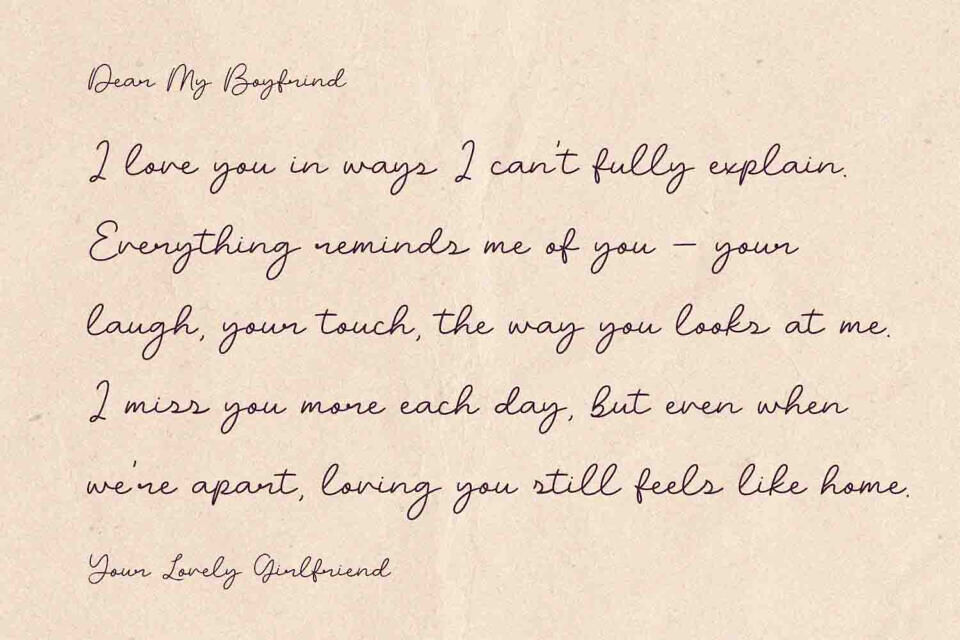 Dear My Boyfrind
I love you in ways I can't fully explain.
Everything reminds me of you – your
laugh, your touch, the way you looks at me.
I miss you more each day, but even when
we're apart, loving you still feels like home.
Your Lovely Girlfriend